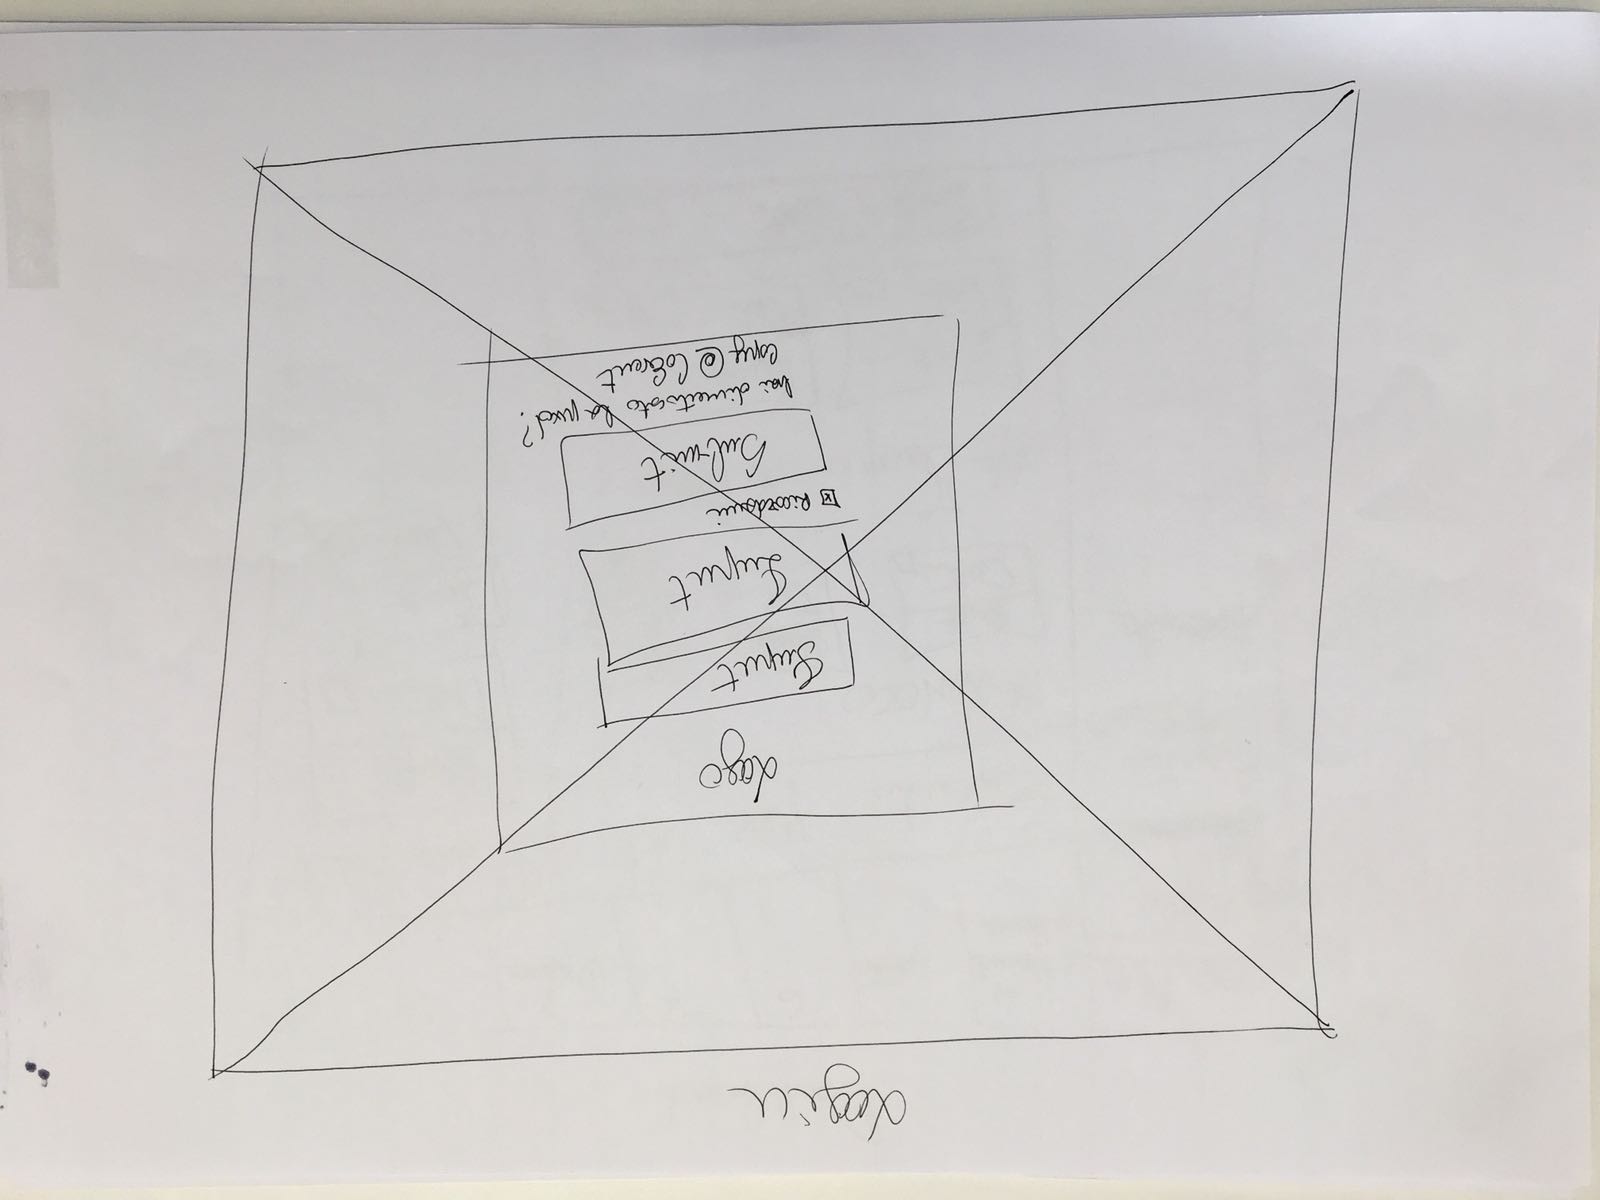 Login
Logo
Input
Input
Ricordami
Submit
hai dimenticato la pwd?
Copy @ CoEvent